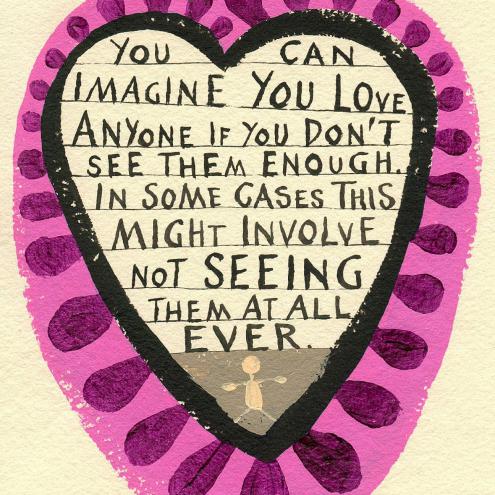 YOU CAN
IMAGINE YOU LOVE
ANYONE IF YOU DON'T
SEE THEM ENOUGH.
IN SOME CASES THIS
MIGHT INVOLVE
NOT SEEING
THEM AT ALL
EVER.